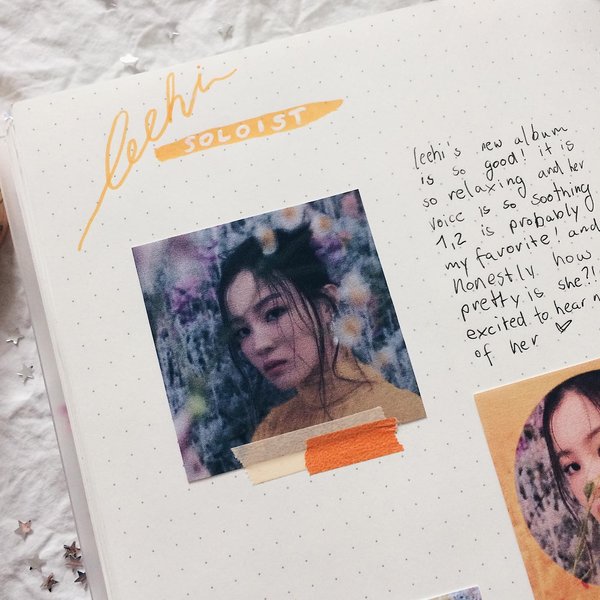 leehi
SOLOIST
leehi's new album
is so good! it is
so relaxing and her
voice is so soothing
1,2 is probably
my favorite! and
honestly how
pretty is she?!
excited to hear
of her ♡